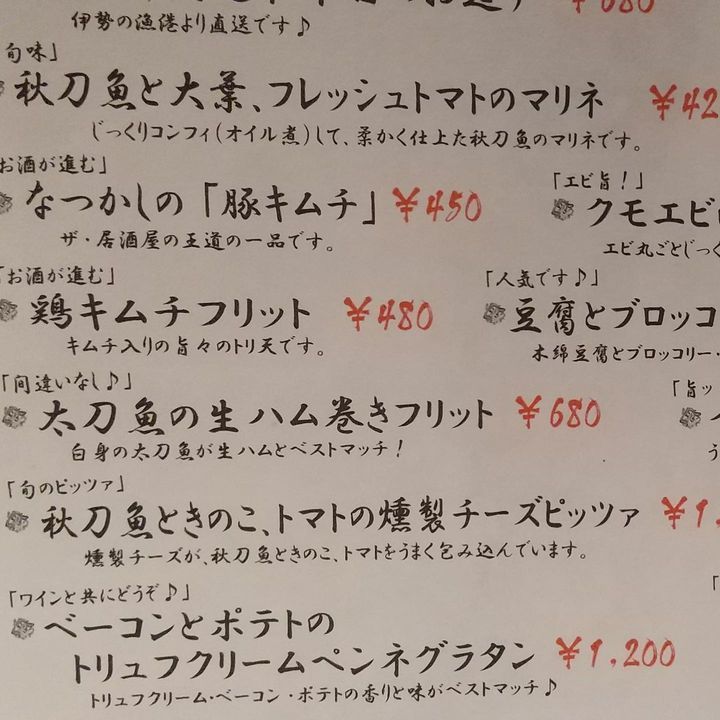 伊勢の漁港より直送です♪ ¥680
旬味」
秋刀魚と大葉、フレッシュトマトのマリネ ¥42
じっくりコンフィ(オイル煮)して、柔かく仕上た秋刀魚のマリネです。
お酒が進む」
なつかしの「豚キムチ」 ¥450
ザ・居酒屋の王道の一品です。
「エビ旨!」
クモエビ
エビ丸ごとじっく
「お酒が進む」
鶏キムチフリット ¥480
キムチ入りの旨々のトリ天です。
「人気です♪」
豆腐とブロッコ
木綿豆腐とブロッコリー・
「間違いなし♪」
太刀魚の生ハム巻きフリット ¥680
白身の太刀魚が生ハムとベストマッチ!
「旨ッ
う
「旬のピッツァ」
秋刀魚ときのこ、トマトの燻製チーズピッツァ ¥1,
燻製チーズが、秋刀魚ときのこ、トマトをうまく包み込んでいます。
「ワインと共にどうぞ♪」
ベーコンとポテトの
トリュフクリームペンネグラタン ¥1,200
トリュフクリーム・ベーコン・ポテトの香りと味がベストマッチ♪